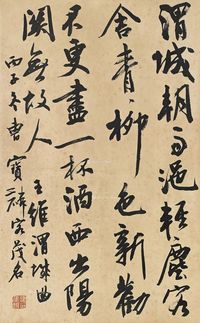 渭城朝雨浥輕塵客
舍青〻柳色新勸
君更盡一杯酒西出陽
關無故人 王維渭城曲
丙子冬曹寶麟客茂名